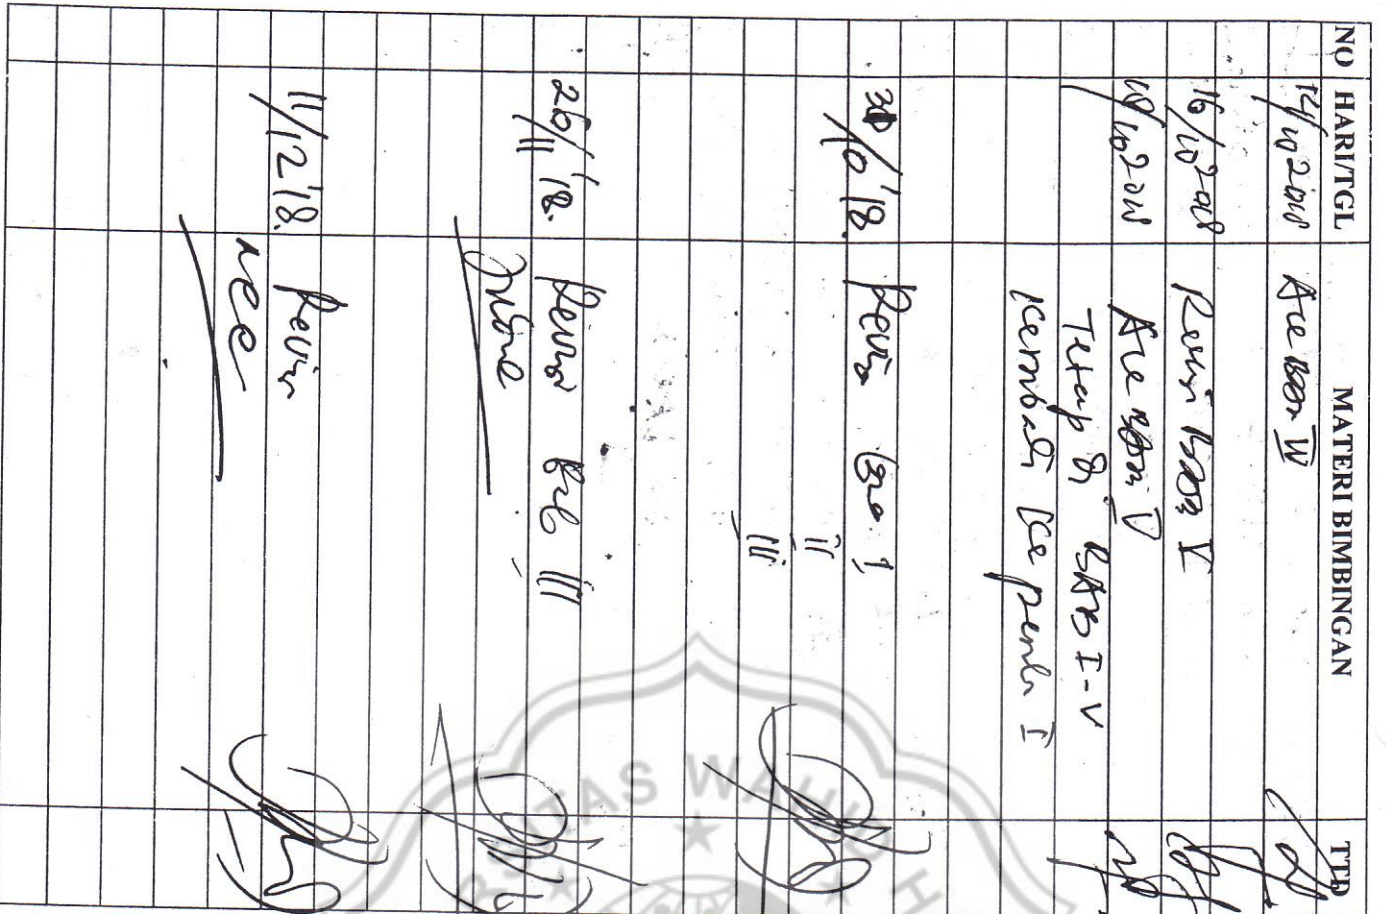 NO HARI/TGL MATERI BIMBINGAN TTD
14/10 2018 Acc BAB IV
16/10 2018 Revisi BAB V
18/10 2018 Acc BAB V
Tetap di BAB I-V
Kembali ke pemb I
30/10 '18. Revisi Bab I
ii
iii
26/11 '18. Revisi Bab III
11/12 '18. Revisi
acc
SITAS WAHID H